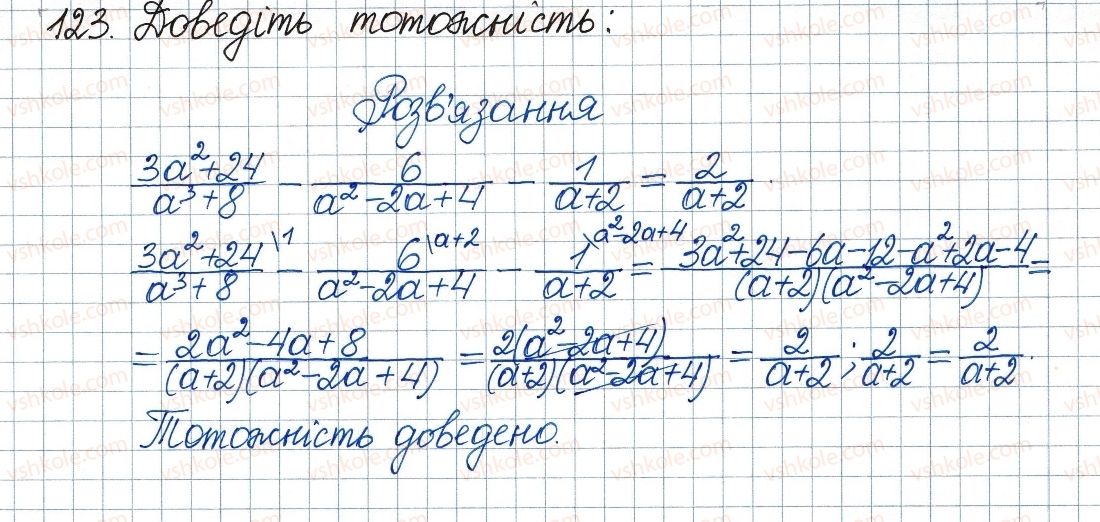 123. Доведіть тотожність:
Розв'язання
3a²+24/a³+8 - 6/a²-2a+4 - 1/a+2 = 2/a+2.
3a²+24\1/a³+8 - 6\a+2/a²-2a+4 - 1\a²-2a+4/a+2 = 3a²+24-6a-12-a²+2a-4/(a+2)(a²-2a+4) =
= 2a²-4a+8/(a+2)(a²-2a+4) = 2(a²-2a+4)/(a+2)(a²-2a+4) = 2/a+2; 2/a+2 = 2/a+2.
Тотожність доведено.
vshkole.com